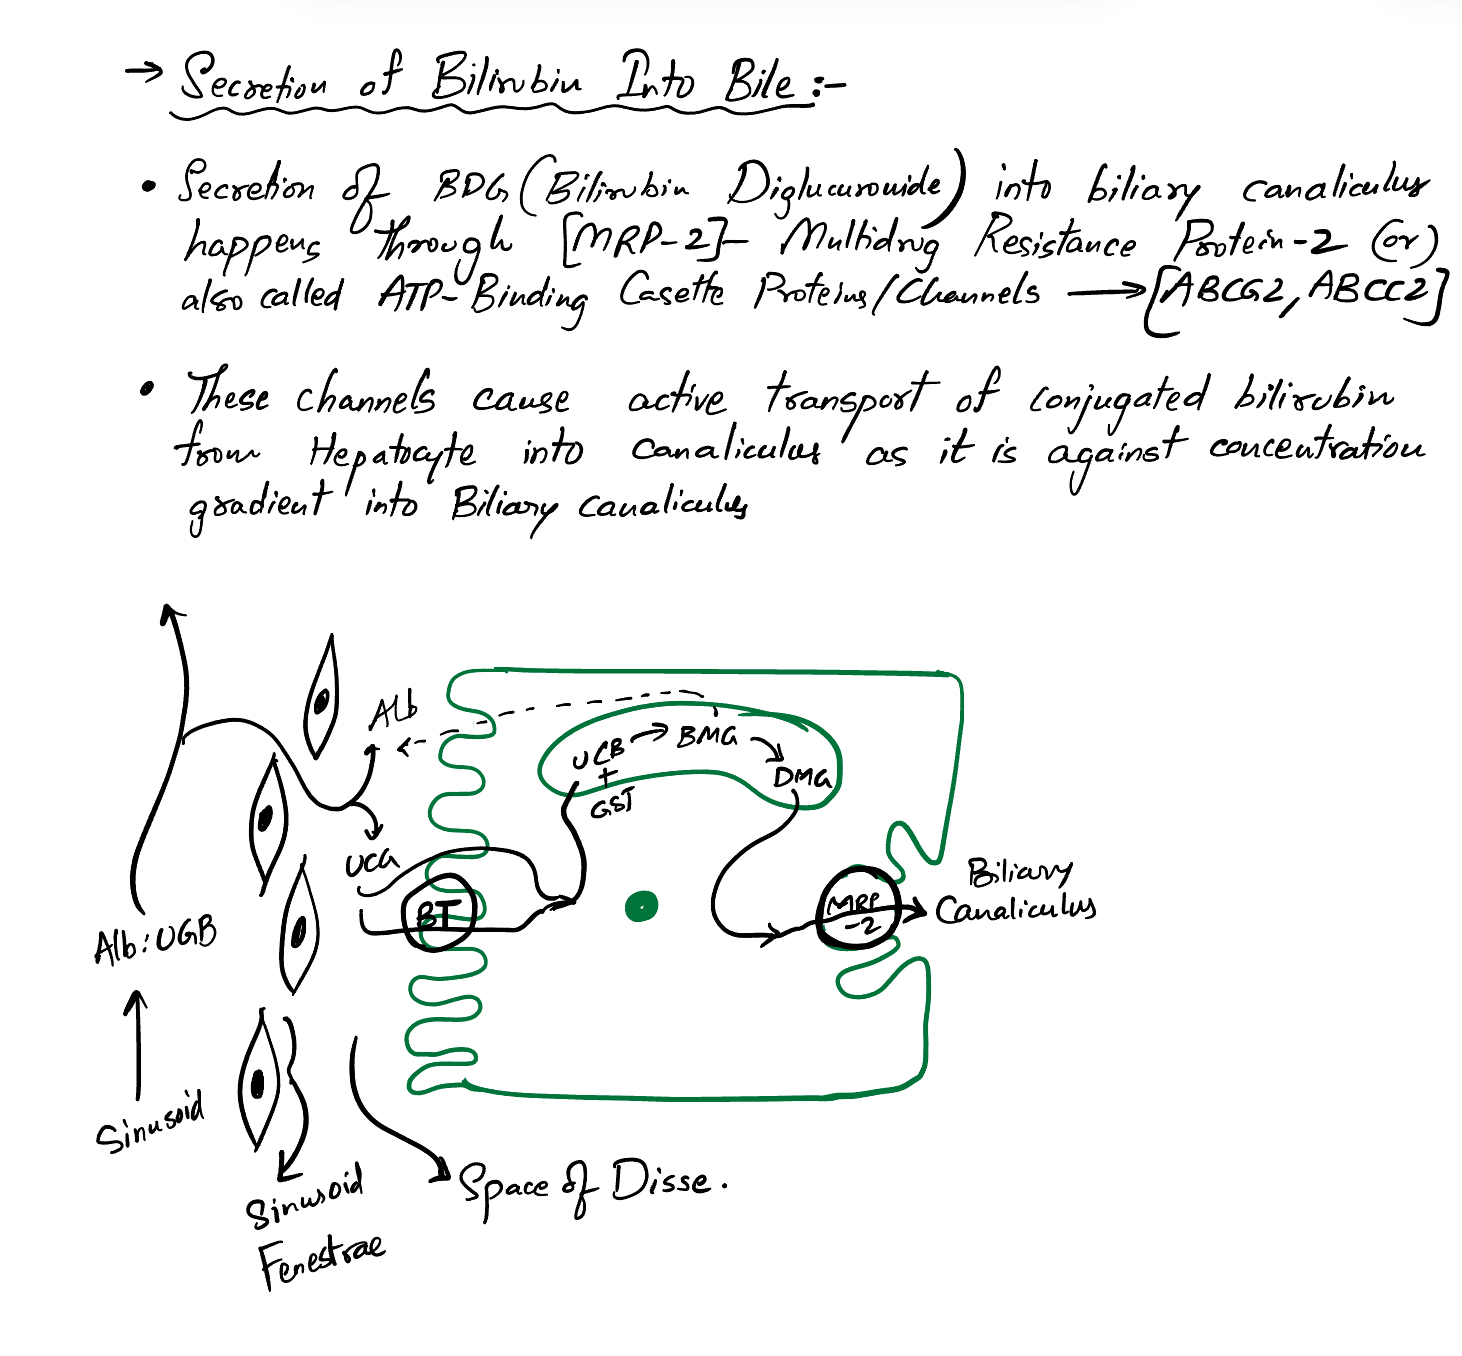 → Secretion of Bilirubin Into Bile :-
• Secretion of BDG (Bilirubin Diglucuronide) into biliary canaliculus
happens through [MRP-2]- Multidrug Resistance Protein-2 (or)
also called ATP-Binding Casette Proteins/Channels → [ABCG2, ABCC2]
• These channels cause active transport of conjugated bilirubin
from Hepatocyte into canaliculus as it is against concentration
gradient into Biliary canaliculus
Alb
UCB → BMG
+
GST
DMG
UCG
BT
MRP
-2
Biliary
Canaliculus
Alb:UGB
Sinusoid
Sinusoid
Fenestrae
Space of Disse.